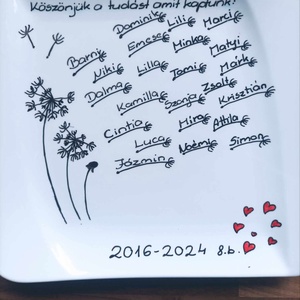 Köszönjük a tudást amit kaptunk!
Dominik Lili Marci
Emese Minka Matyi
Barni Lilla Tomi Márk
Niki Zsolt
Dalma Kamilla Szonja Krisztián
Cintia Mira Attila
Luca Noémi Simon
Jázmin
2016-2024 8.b.